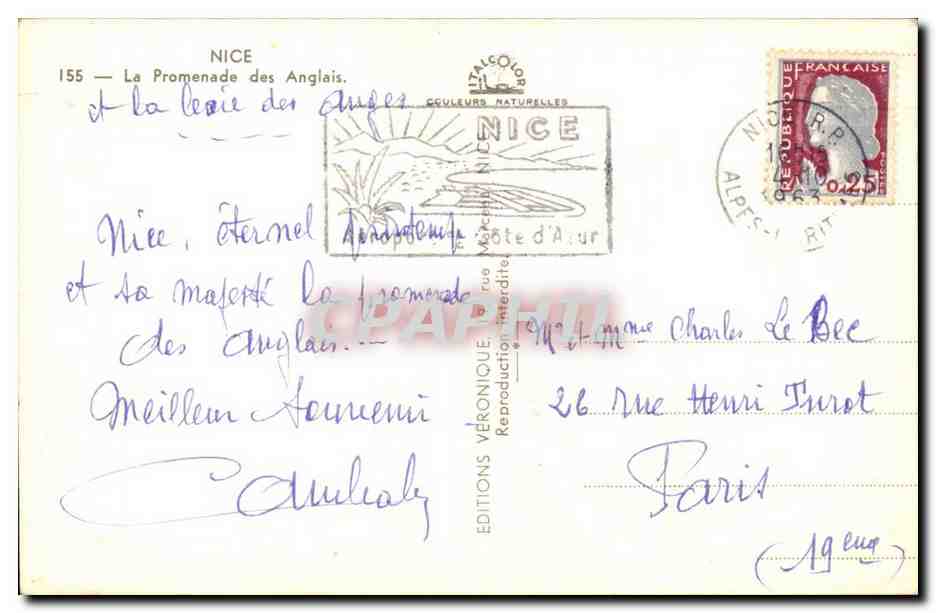 NICE
155 — La Promenade des Anglais.
et la baie des anges
ITALCOLOR
COULEURS NATURELLES
NICE
Aéroport Côte d'Azur
RÉPUBLIQUE FRANÇAISE
0,25
POSTES
NICE R.P.
4-10
1963
ALPES-MARIT
Nice, éternel printemps
et sa majesté la promenade
des anglais.
Meilleur souvenir
EDITIONS VÉRONIQUE, rue NICE
Reproduction interdite
CPAPHIL
Mr et mme Charles Le Bec
26 rue Henri Turot
Paris
(19eme)